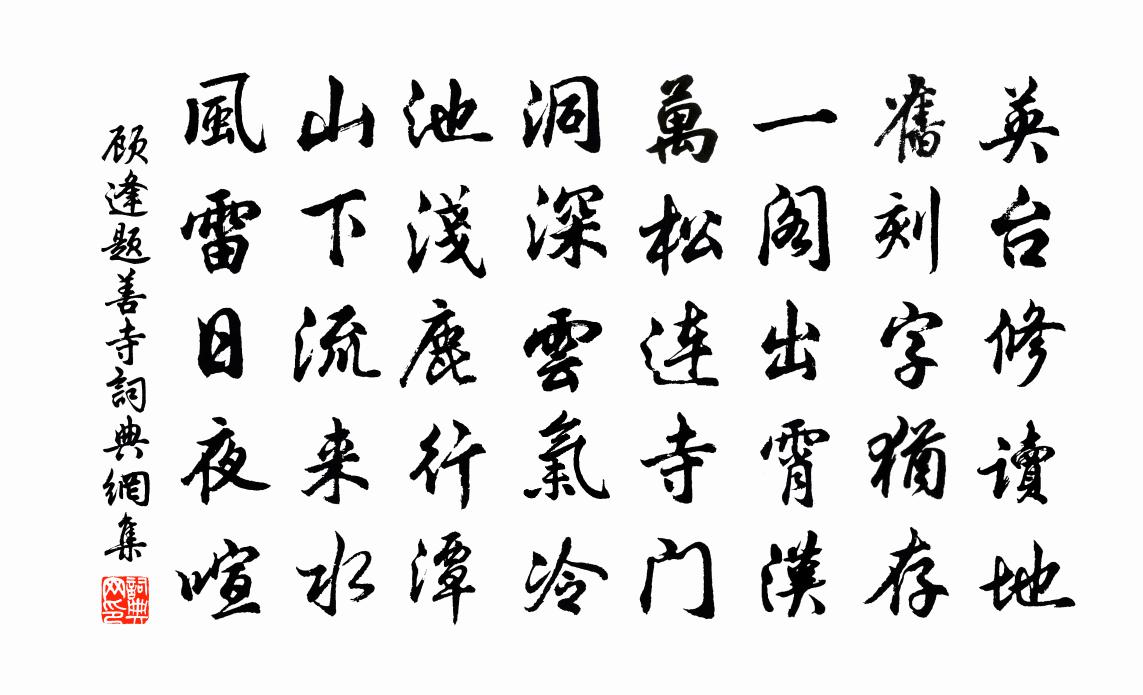 英台修讀地
舊刻字猶存
一阁出霄漢
萬松连寺门
洞深雲氣冷
池淺鹿行潭
山下流来水
風雷日夜喧
顾逢题善寺詞典網集
詞典网印